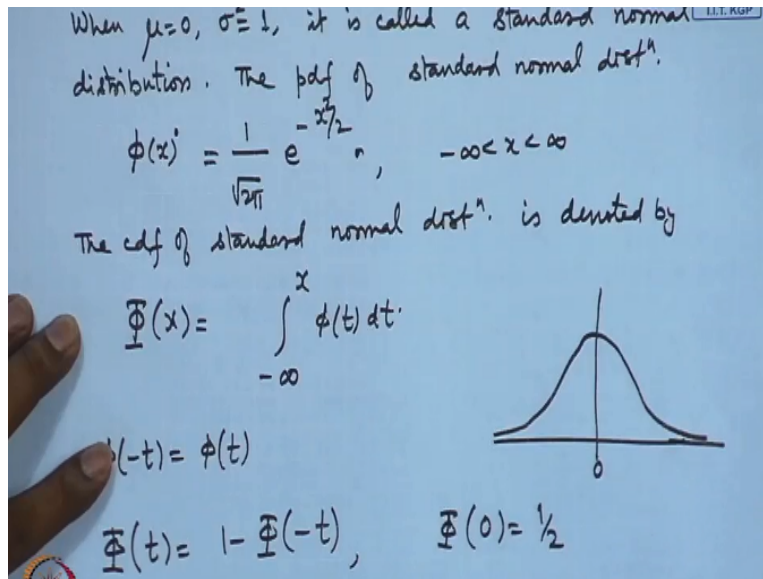 When μ=0, σ²=1, it is called a standard normal
I.I.T. KGP
distribution. The pdf of standard normal distⁿ.
ϕ(x) = 1/√2π e^(-x²/2), -∞<x<∞
The cdf of standard normal distⁿ. is denoted by
Φ(x) = ∫_{-∞}^{x} ϕ(t) dt.
0
ϕ(-t) = ϕ(t)
Φ(t) = 1- Φ(-t), Φ(0) = 1/2